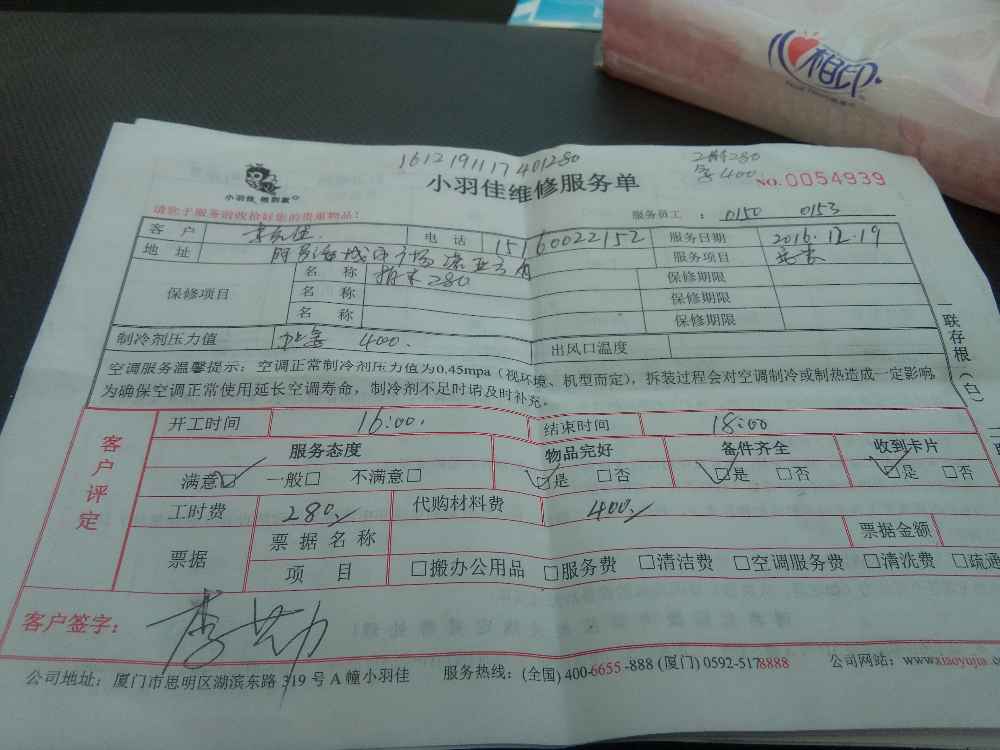 相印
1612191117401280
280
400
小羽佳维修服务单
NO.0054939
小羽佳
请您于服务前收拾好您的贵重物品!
服务员工 : 0150 0153
客 户 电 话 15160022152 服务日期 2016.12.19
地 址 服务项目
保修项目 名 称 280 保修期限
名 称 保修期限
名 称 保修期限
制冷剂压力值 400. 出风口温度
空调服务温馨提示:空调正常制冷剂压力值为0.45mpa(视环境、机型而定),拆装过程会对空调制冷或制热造成一定影响,
为确保空调正常使用延长空调寿命,制冷剂不足时请及时补充。
联存根(白)
客户评定
开工时间 16:00. 结束时间 18:00
服务态度 物品完好 备件齐全 收到卡片
满意☑ 一般□ 不满意□ ☑是 □否 ☑是 □否 ☑是 □否
工时费 280 代购材料费 400
票据 票据名称 票据金额
项 目 □搬办公用品 □服务费 □清洁费 □空调服务费 □清洗费 □疏通
客户签字:
公司地址:厦门市思明区湖滨东路319号A幢小羽佳 服务热线:(全国)400-6655-888(厦门)0592-5178888 公司网站:www.xiaoyujia.